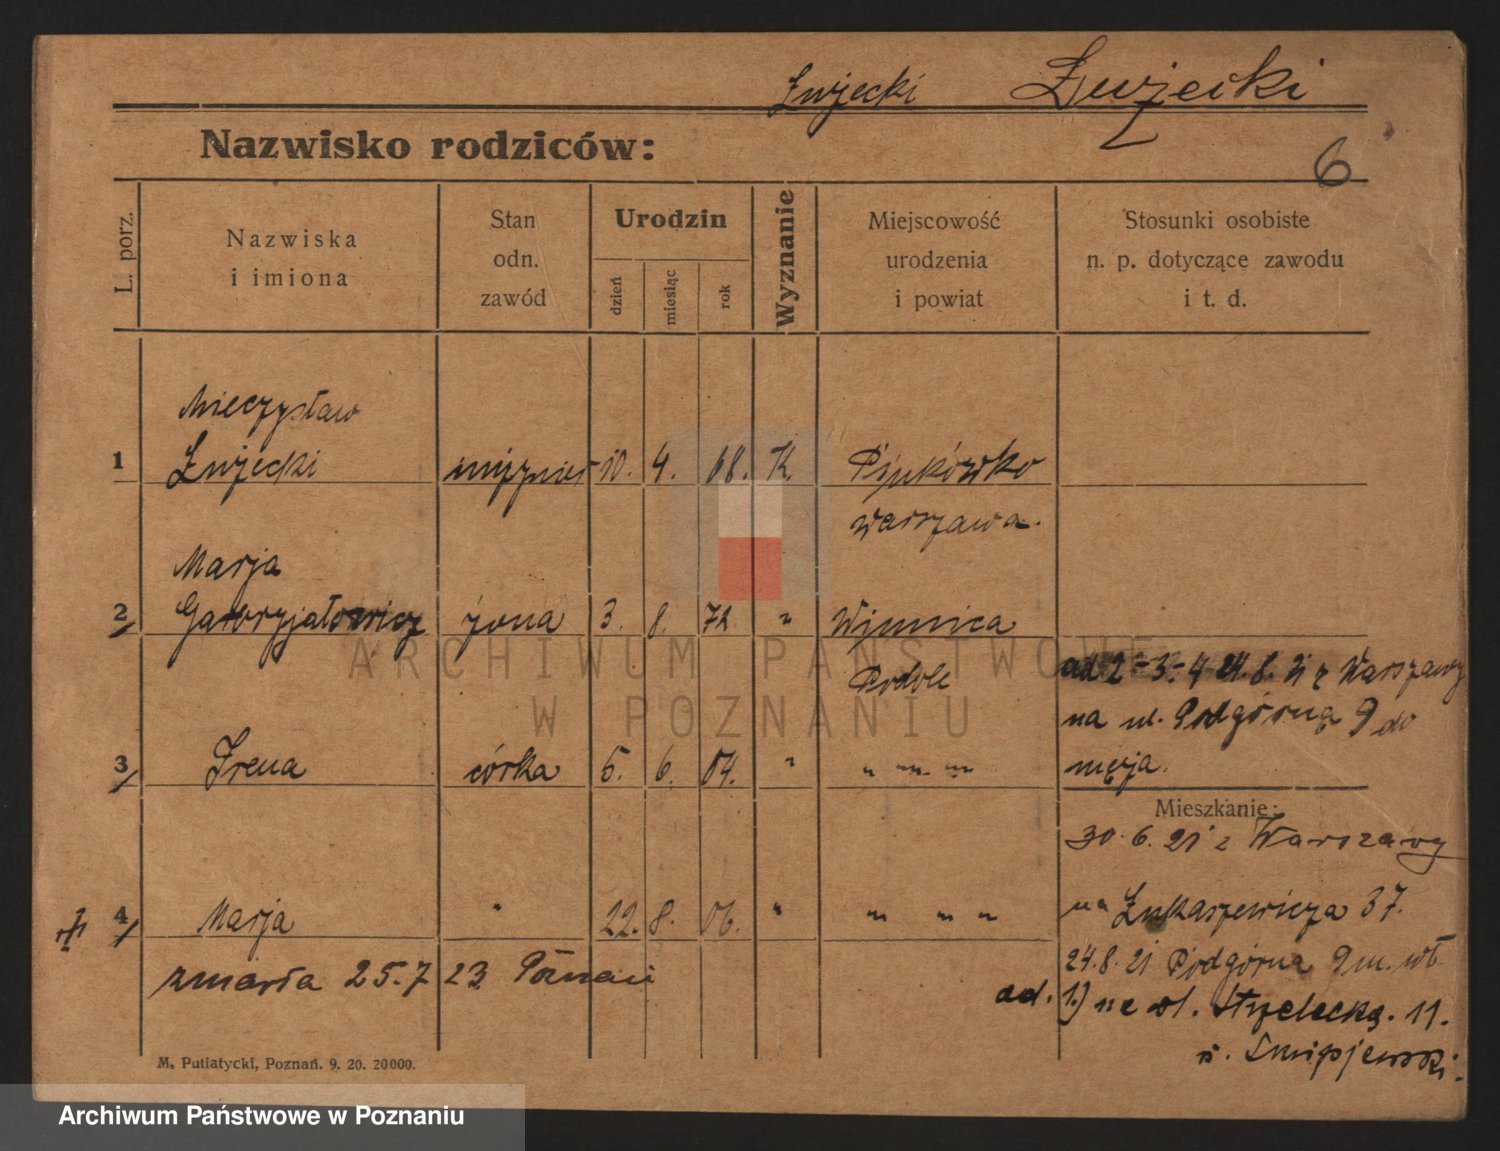 Żużecki Żużecki
Nazwisko rodziców:
6
L. porz.
Nazwiska
i imiona
Stan
odn.
zawód
Urodzin
dzień
miesiąc
rok
Wyznanie
Miejscowość
urodzenia
i powiat
Stosunki osobiste
n. p. dotyczące zawodu
i t. d.
Mieczysław
1 10. 4. 68. K.
Warszawa.
Marja
2 żona 3. 8. 72. " Winnica
Podole
ad 2-3-4 24.8.21 z Warszawy
na ul. Podgórną 9 do
męża.
3 Irena córka 5. 6. 04. " " " "
Mieszkanie:
30.6.21 z Warszawy
4 Marja " 22. 8. 06. " " " "
na Łukaszewicza 37.
zmarła 25.7 23 Poznań
24.8.21 Podgórna 9 m. wł.
ad. 1.) na ul. Strzelecką. 11.
M. Putiatycki, Poznań. 9. 20. 20000.
ARCHIWUM PAŃSTWOWE
W POZNANIU
Archiwum Państwowe w Poznaniu